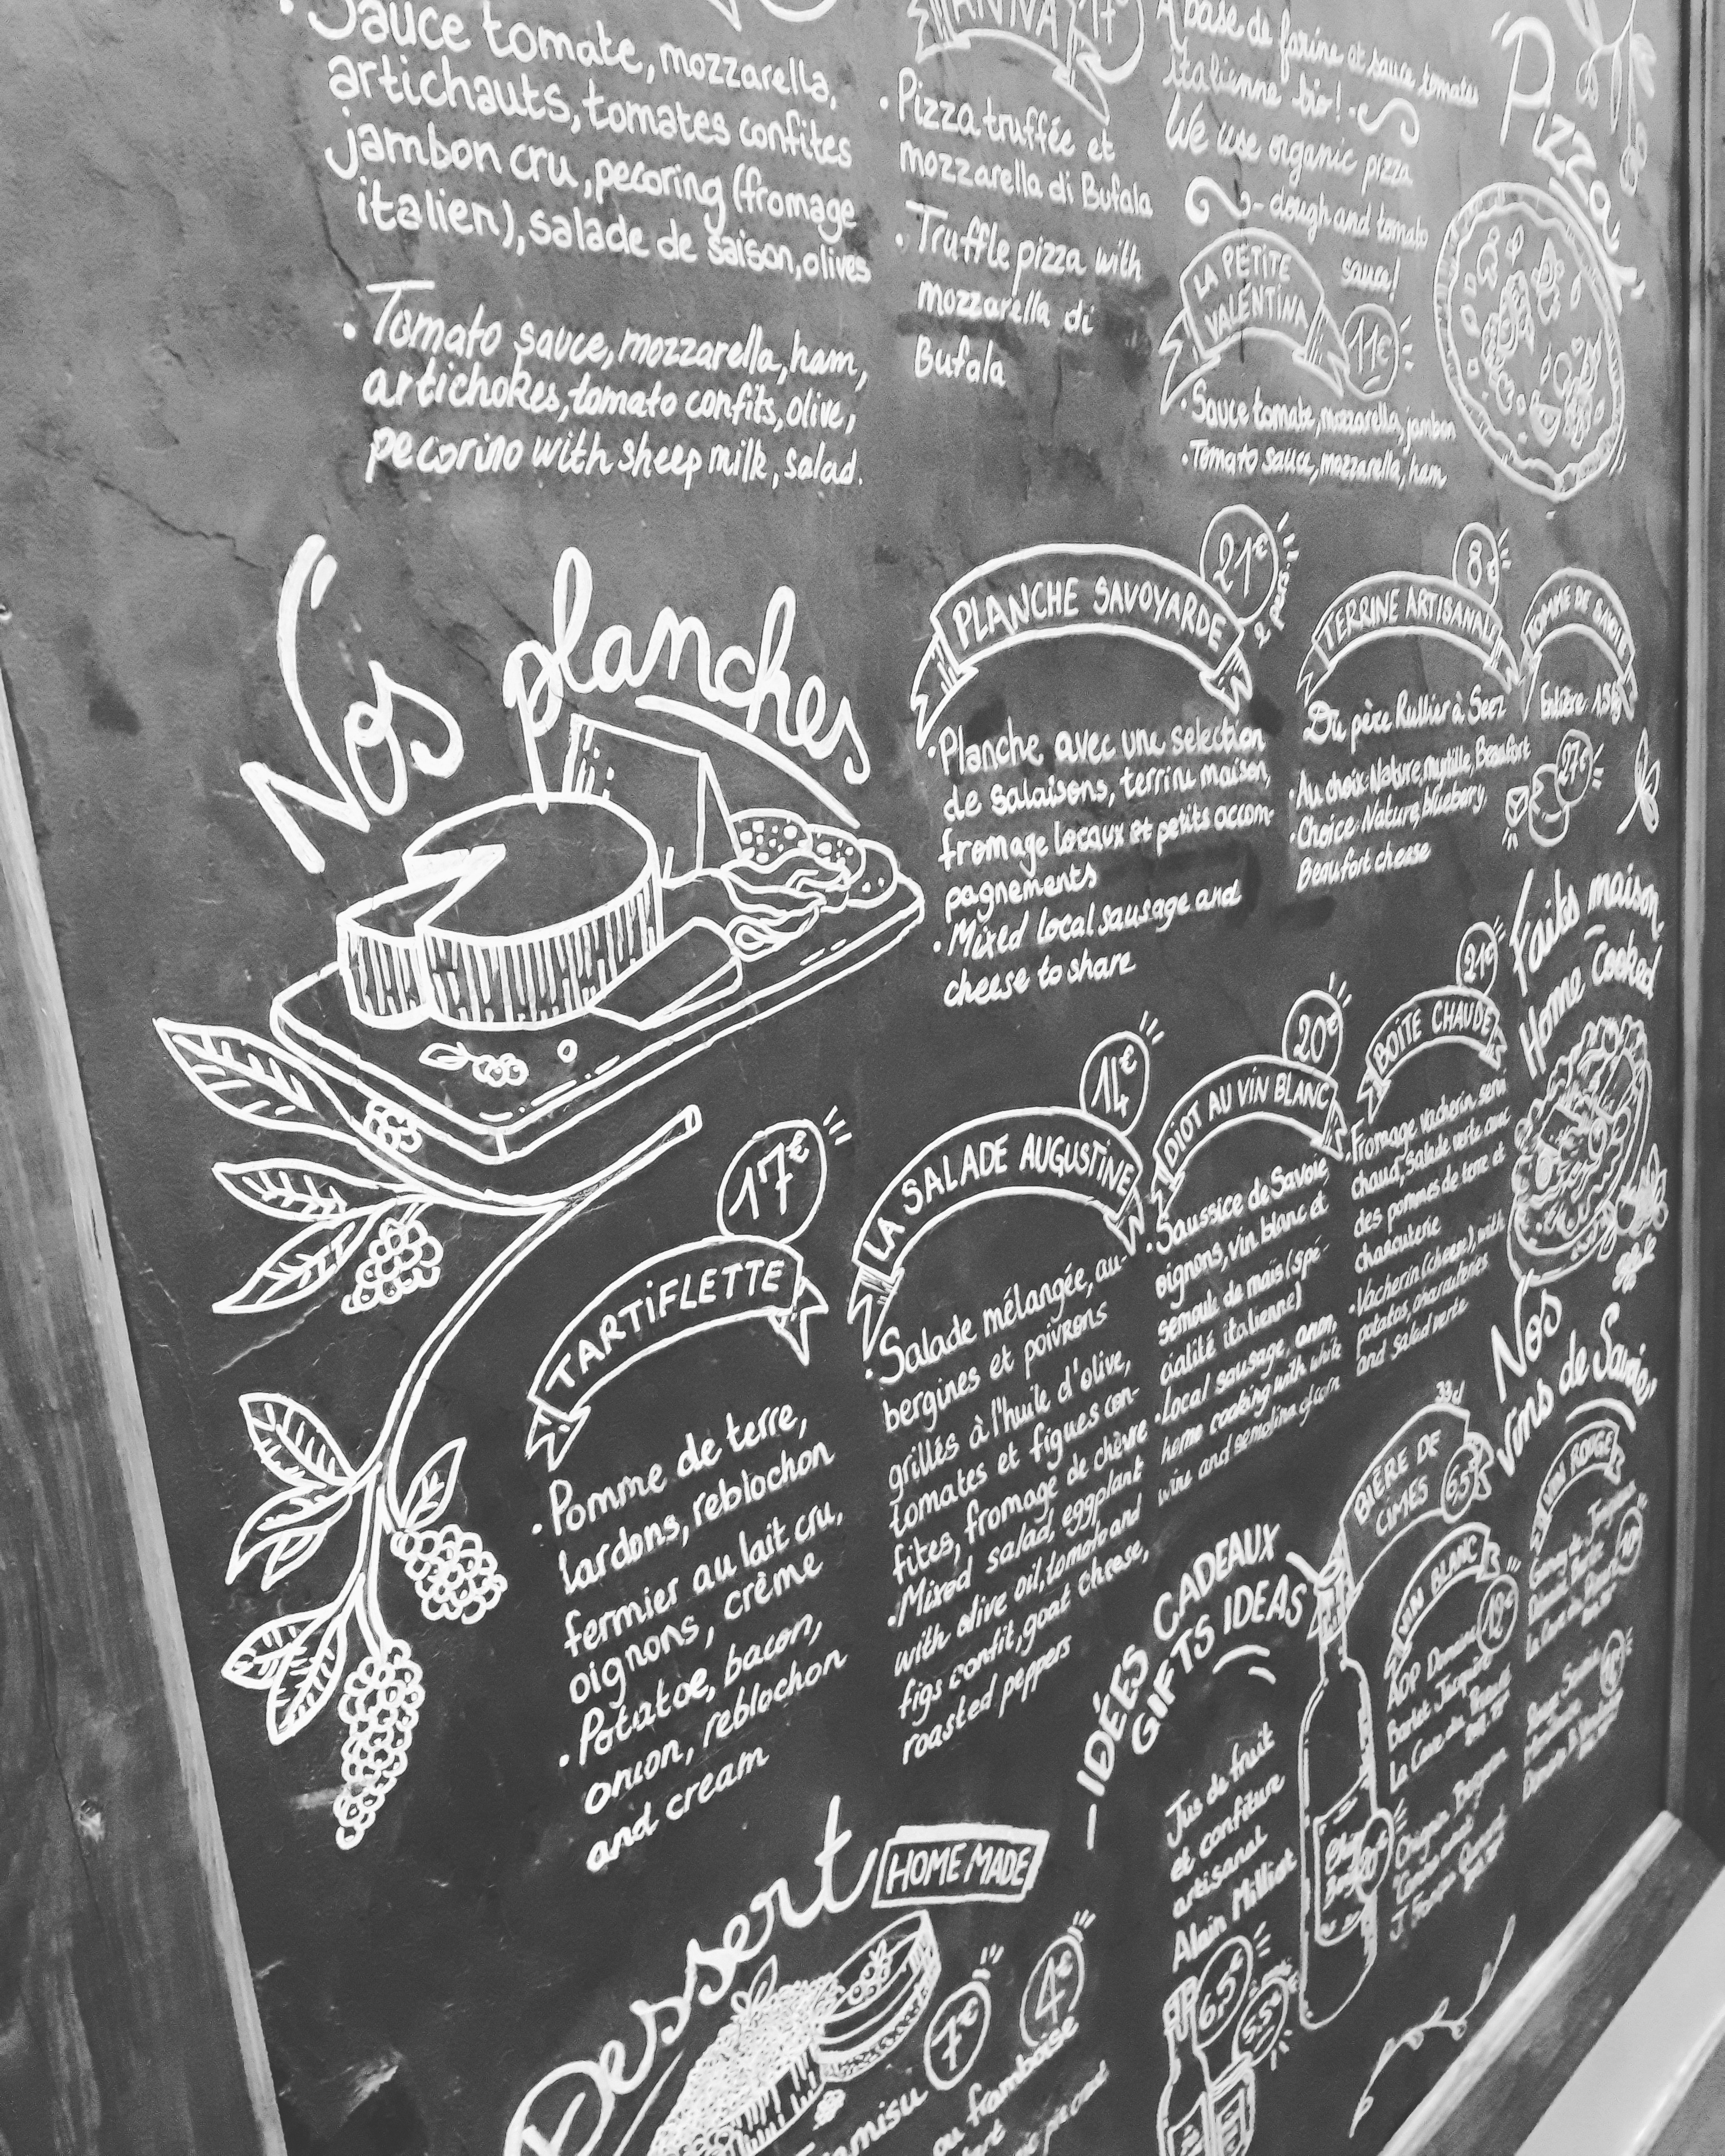 Sauce tomate, mozzarella,
artichauts, tomates confites
jambon cru, pecoring (fromage
italien), salade de saison, olives
• Tomato sauce, mozzarella, ham,
artichokes, tomato confits, olive,
pecorino with sheep milk, salad.
ANNA
• Pizza truffée et
mozzarella di Bufala
• Truffle pizza with
mozzarella di
Bufala
A base de farine et sauce tomates
italienne bio!
We use organic pizza
dough and tomato
sauce!
Pizza
LA PETITE
VALENTINA
11€
• Sauce tomate, mozzarella, jambon
• Tomato sauce, mozzarella, ham
Nos planches
PLANCHE SAVOYARDE
21€
2 pers.
• Planche avec une selection
de salaisons, terrine maison,
fromage locaux et petits accom-
pagnements
• Mixed local sausage and
cheese to share
TERRINE ARTISANALE
8€
Du père Rullier à Seez
• Au choix: Nature, myrtille, Beaufort
• Choice: Nature, bluebery,
Beaufort cheese
TOMME DE
Entière 1,5kg
27€
Faites maison
Home Cooked
TARTIFLETTE
17€
• Pomme de terre,
lardons, reblochon
fermier au lait cru,
oignons, crème
• Potatoe, bacon,
onion, reblochon
and cream
LA SALADE AUGUSTINE
14€
• Salade mélangée, au-
bergines et poivrons
grillés à l'huile d'olive,
tomates et figues con-
fites, fromage de chèvre
• Mixed salad, eggplant
with olive oil, tomato and
figs confit, goat cheese,
roasted peppers
DIOT AU VIN BLANC
20€
• Saussice de Savoie,
oignons, vin blanc et
semoule de maïs (spé-
cialité italienne)
• Local sausage, onion,
home cooking with white
wine and semolina of corn
BOITE CHAUDE
21€
Fromage vacherin servi
chaud, salade verte avec
des pommes de terre et
charcuterie
• Vacherin (cheese), with
potatos, charcuteries
and salad verte
Nos
vins de Savoie
BIÈRE DE
CIMES
33cl
6,5€
VIN BLANC
12€
AOP Domaine
VIN ROUGE
IDÉES CADEAUX
GIFTS IDEAS
Jus de fruit
et confiture
artisanal
Alain Milliat
6,5€
5,5€
Dessert
HOME MADE
7€
4€
framboise